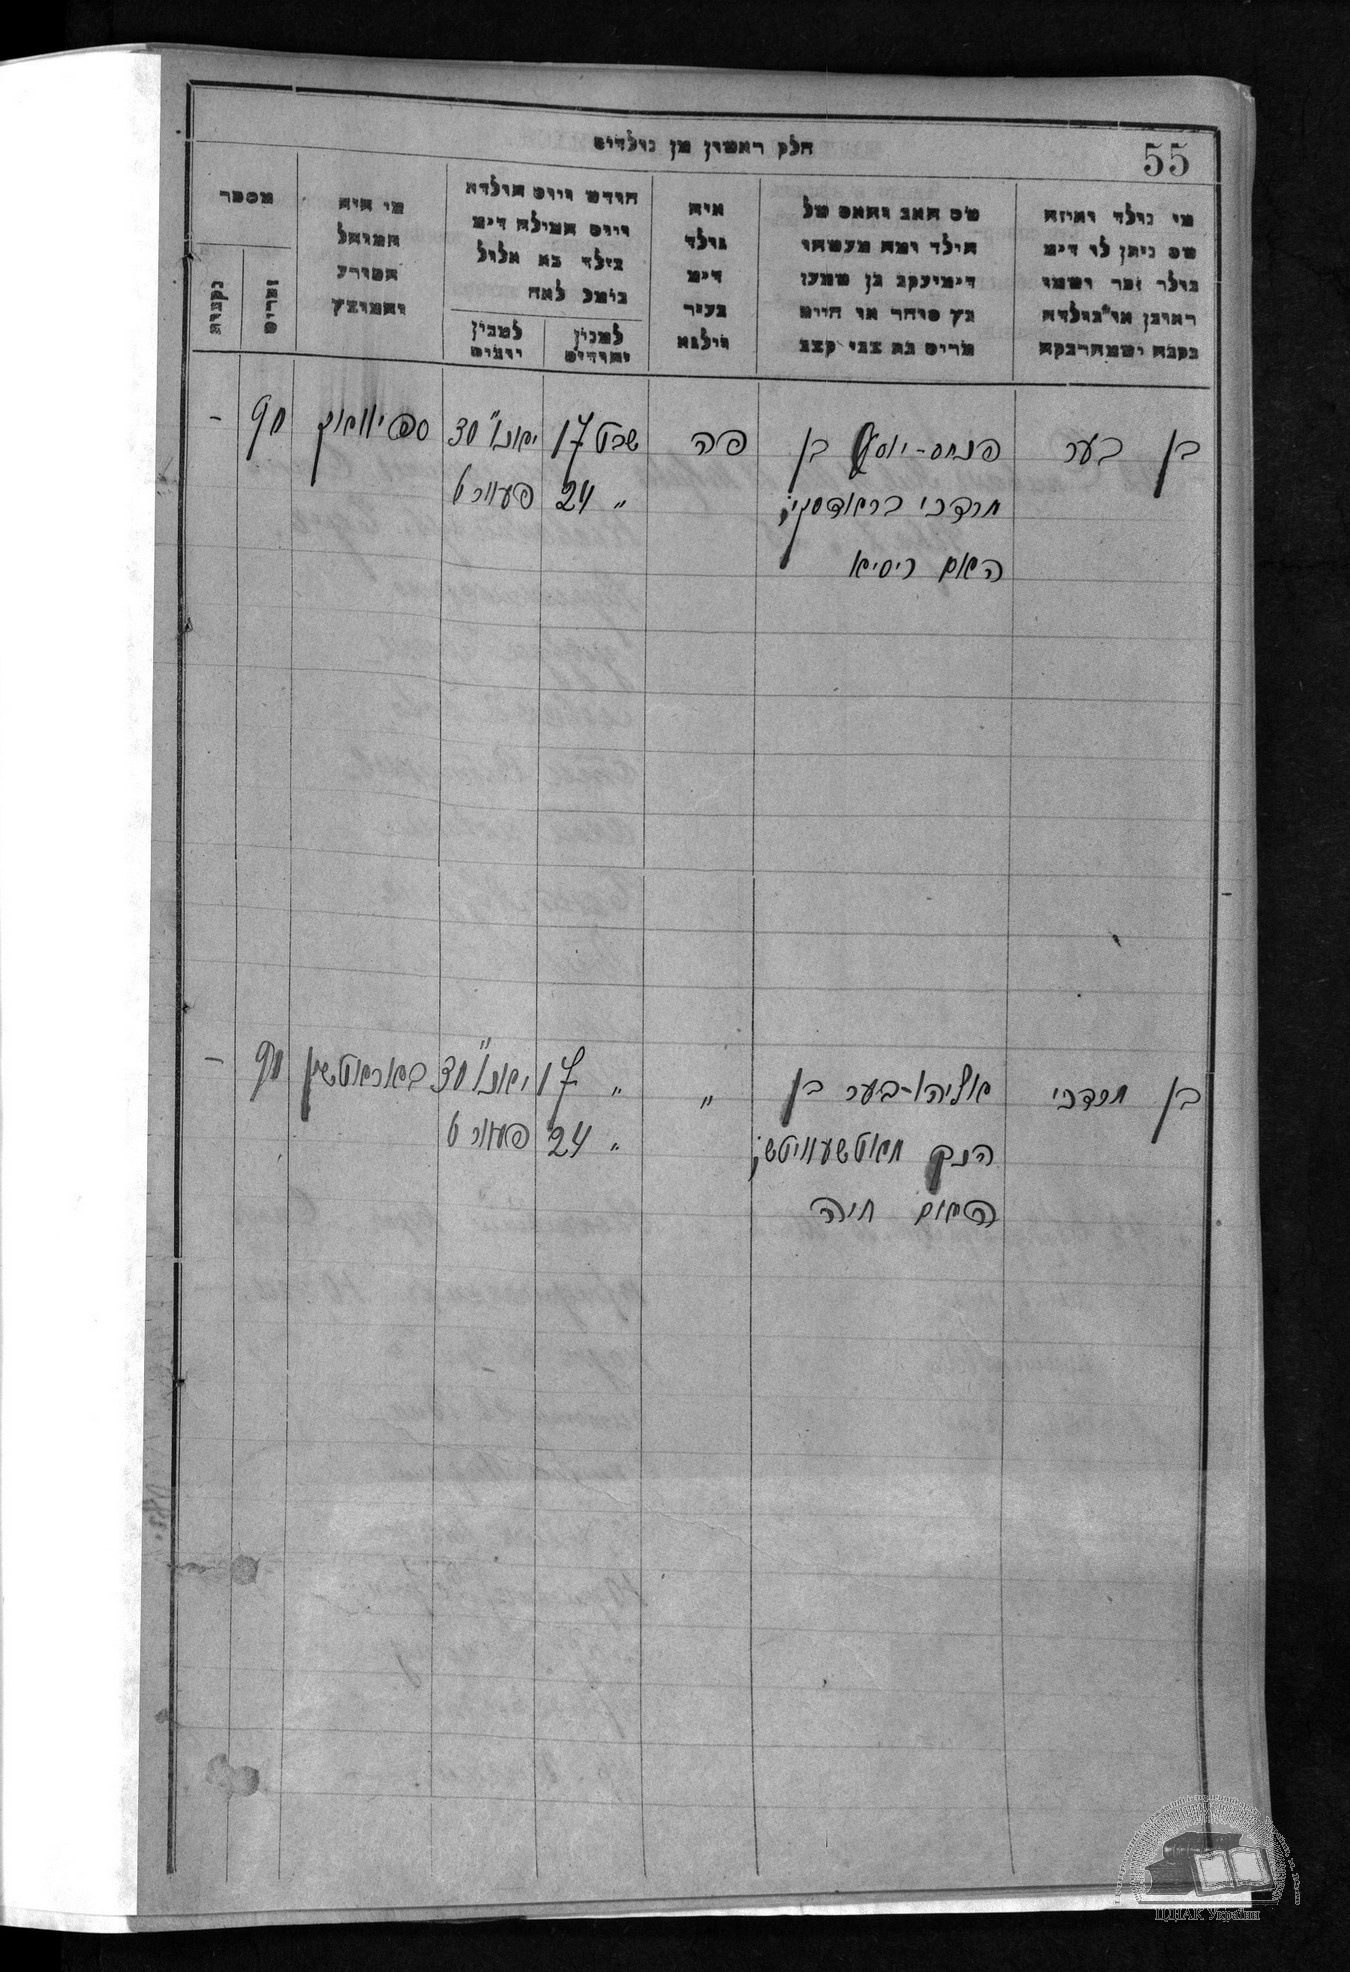 55
חלק ראשון מן נולדים
מי נולד ואיזה
שם ניתן לו דימ
נולד זכר ושמו
ראובן או״נולדה
נקבה ושמהרבקה
שם האב והאם של
הילד ומה מעשהו
דימיעקב בן שמעון
כץ סוחר או חיים
מריס בת צבי קצב
איה
נולד
דימ
בעיר
ווילנא
חודש ויום הולדת
ויום המילה דימ
נולד בא אלול
נימול לאח
למנין
יהודים
למנין
יוונים
מי היה
המוהל
הפורע
והמוצץ
מספר
זכרים
נקבות
בן בער
פנחס-יוסף בן
מרדכי בראדסקי;
האם ריסיא
פה
שבט 17
" 24
יאנו״ 30
פעוור 6
ספיוואק
98
-
בן מרדכי
אליהו-בער בן
הנק מאטשעוויטש;
האם חיה
"
" 17
" 24
יאנו״ 30
פעוור 6
98
-
ЦДІАК України